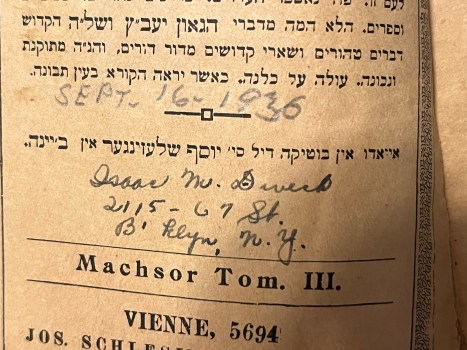 וספרים. הלא המה מדברי הגאון יעב״ץ ושל״ה הקדוש
דברים טהורים ושארי קדושים מדור דורים, והגי״ה מתוקנת
ונבונה. עולה על כלנה. כאשר יראה הקורא בעין תבונה.
SEPT. 16 - 1936
אייאדו אין בוטיקה דיל סי׳ יוסף שלעזינגער אין ב׳יינה.
Isaac M.
2115 - 67 St.
B'klyn, N.Y.
Machsor Tom. III.
VIENNE, 5694
JOS.